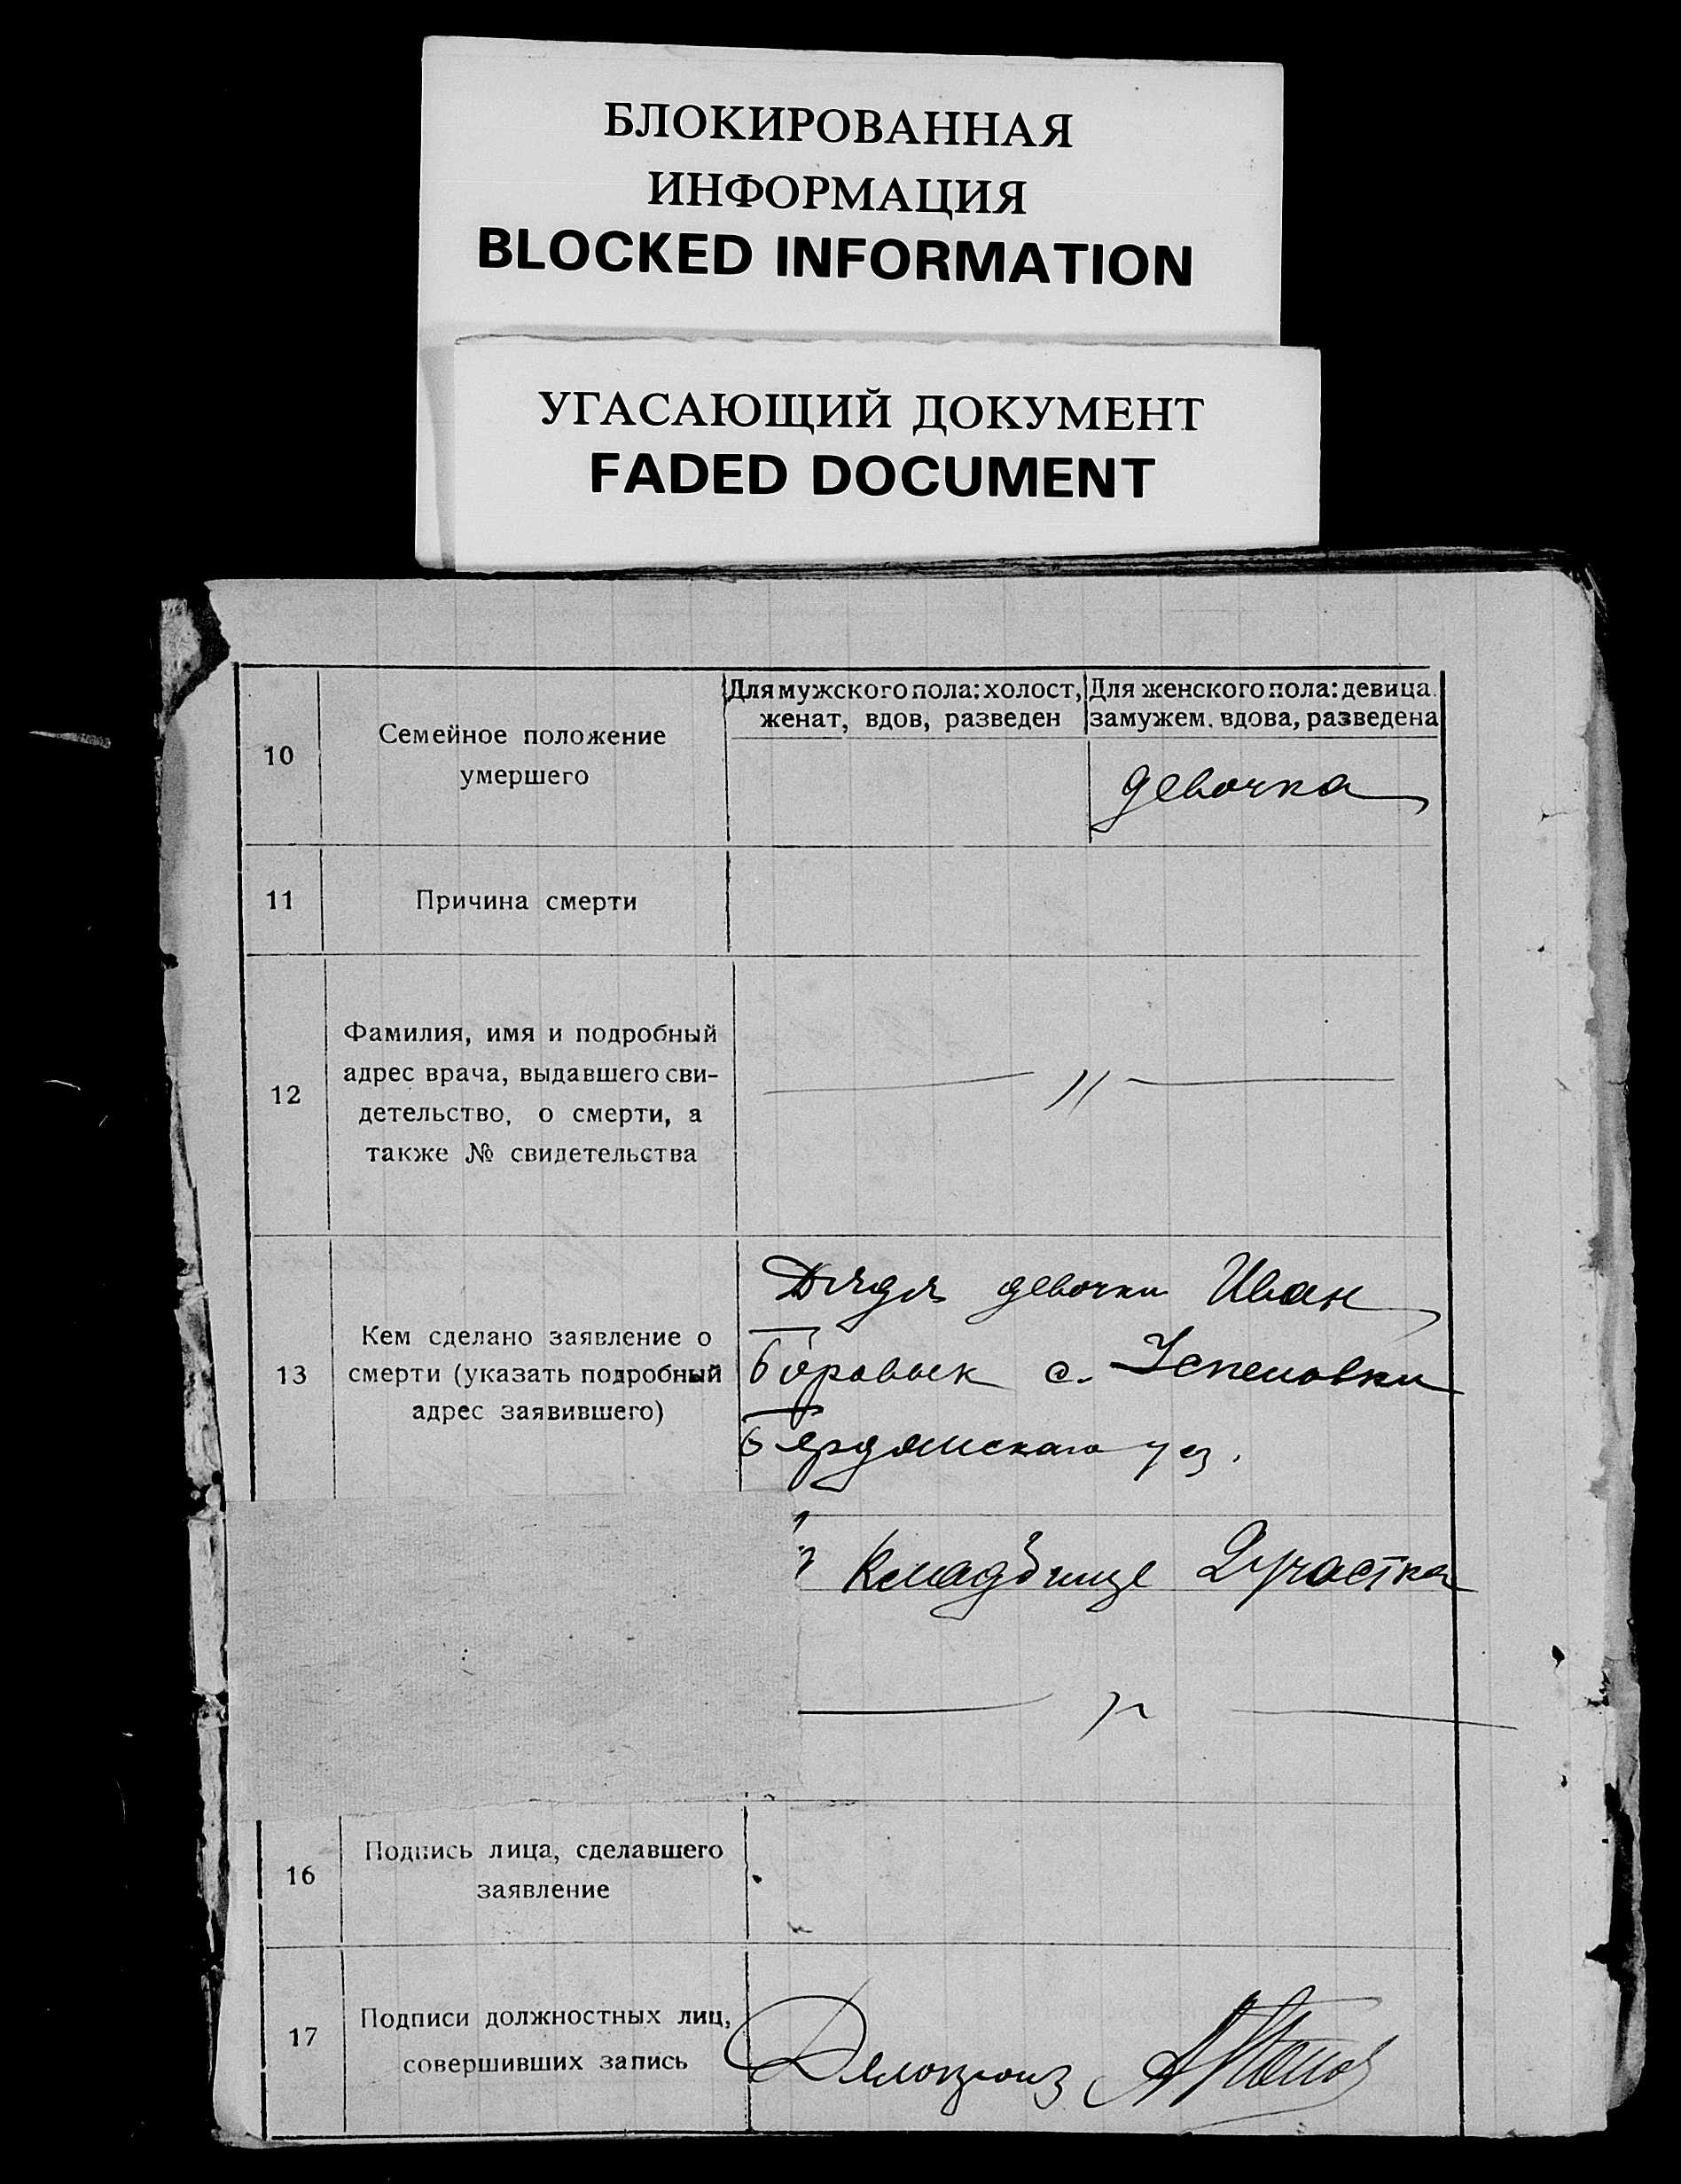 БЛОКИРОВАННАЯ
ИНФОРМАЦИЯ
BLOCKED INFORMATION
УГАСАЮЩИЙ ДОКУМЕНТ
FADED DOCUMENT
10
Семейное положение
умершего
Для мужского пола: холост,
женат, вдов, разведен
Для женского пола: девица.
замужем. вдова, разведена
девочка
11
Причина смерти
12
Фамилия, имя и подробный
адрес врача, выдавшего сви-
детельство, о смерти, а
также № свидетельства
— " —
13
Кем сделано заявление о
смерти (указать подробный
адрес заявившего)
Дядя девочки Иван
Боровык с. Успеновки
Бердянскаго уез.
Кладбище 2 участка
— " —
16
Подпись лица, сделавшего
заявление
17
Подписи должностных лиц,
совершивших запись